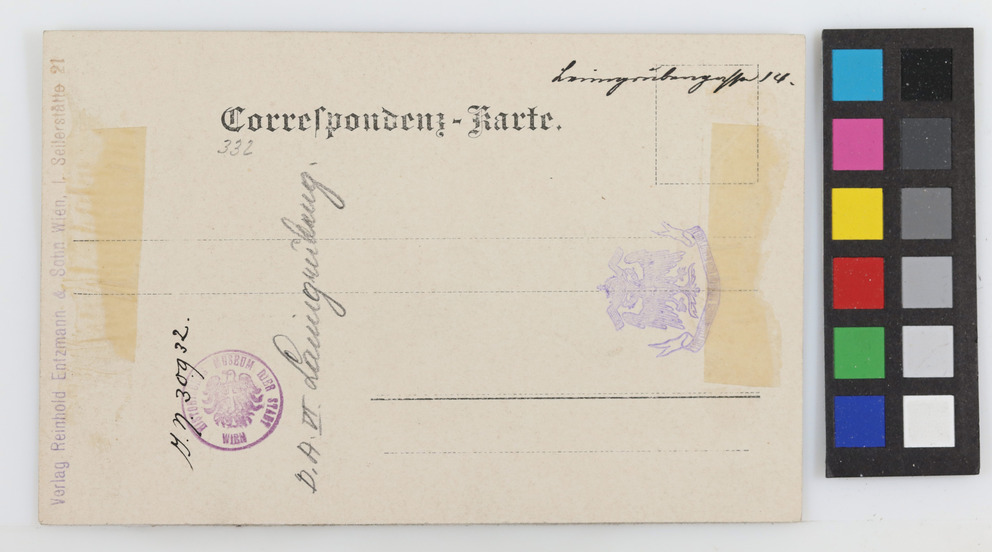 Leimgrubengasse 14.
Correspondenz-Karte.
332
Verlag Reinhold Entzmann & Sohn Wien, I. Seilerstätte 21
I.N. 30932.
MUSEUM DER STADT WIEN
D. A. VI.